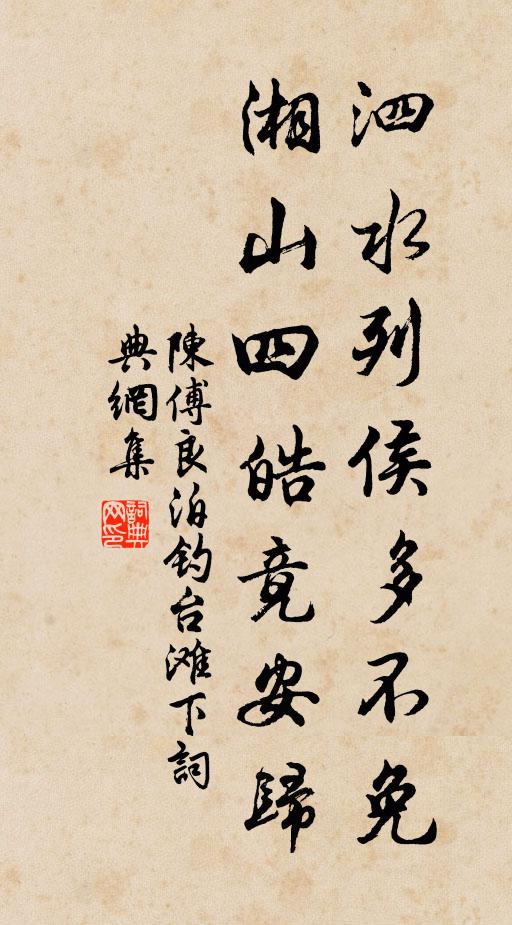 泗水列侯多不免
湘山四皓竟安歸
陳傅良泊釣台滩下詞
典網集
詞典網印